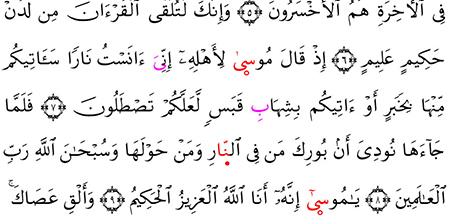 فِى ٱلْأَخِرَةِ هُمُ ٱلْأَخْسَرُونَ ﴿٥﴾ وَإِنَّكَ لَتُلَقَّى ٱلْقُرْءَانَ مِن لَّدُنْ
حَكِيمٍ عَلِيمٍ ﴿٦﴾ إِذْ قَالَ مُوسَىٰ لِأَهْلِهِۦٓ إِنِّىٓ ءَانَسْتُ نَارًا سَـَٔاتِيكُم
مِّنْهَا بِخَبَرٍ أَوْ ءَاتِيكُم بِشِهَابٍ قَبَسٍ لَّعَلَّكُمْ تَصْطَلُونَ ﴿٧﴾ فَلَمَّا
جَآءَهَا نُودِىَ أَنۢ بُورِكَ مَن فِى ٱلنَّارِ وَمَنْ حَوْلَهَا وَسُبْحَـٰنَ ٱللَّهِ رَبِّ
ٱلْعَـٰلَمِينَ ﴿٨﴾ يَـٰمُوسَىٰٓ إِنَّهُۥٓ أَنَا ٱللَّهُ ٱلْعَزِيزُ ٱلْحَكِيمُ ﴿٩﴾ وَأَلْقِ عَصَاكَ ۚ